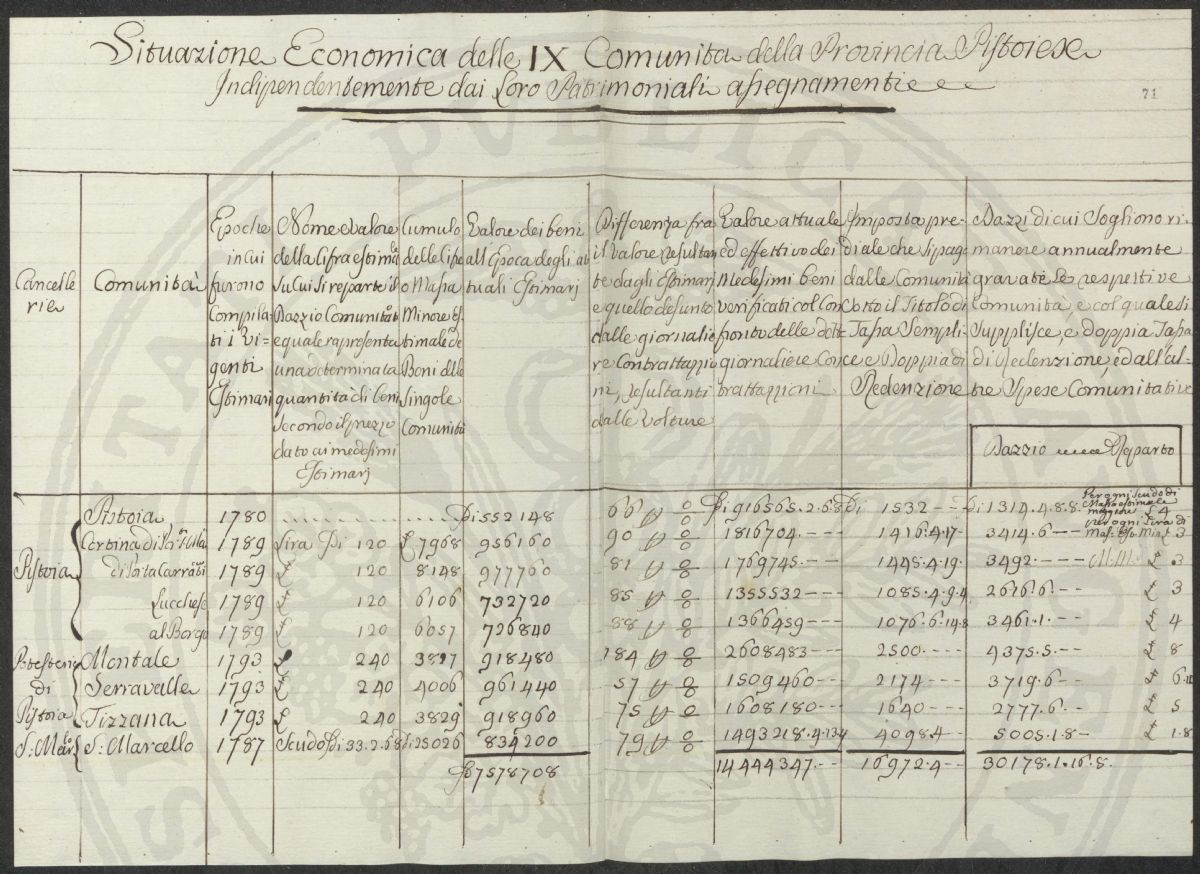 Situazione Economica delle IX Comunita della Provincia Pistoiese
Indipendentemente dai Loro Patrimoniali assegnamenti
71
Cancelle
rie
Comunità
Epoche
in cui
furono
Compila
ti i Vi-
genti
Estimari
Nome e Valore
della Cifra estimale
su cui si reparte il
Dazzio Comunitati
e quale rapresenta
una determinata
quantità di beni
secondo il prezzo
dato ai medesimi
Estimarj
Cumulo
delle Cifre
o Massa
Minore Es
timale de
Boni delle
Singole
Comunità
Valore dei beni
all'Epoca degli at
tuali Estimarj
Differenza fra
il Valore resultan
te dagli Estimarj
e quello desunto
dalle giornalie
re Contrattazio
ni, resultanti
dalle Volture
Valore attuale
ed effettivo dei
Medesimi beni
verificati col Con
fronto delle dette
giornaliere Con
trattazzioni
Imposta pre-
diale che si paga
dalle Comunita
sotto il Titolo di
Tassa Sempli-
ce e Doppia di
Redenzione
Dazzi di cui Sogliono ri-
manere annualmente
gravate le respettive
Comunità, e col quale si
Supplisce, e doppia Tassa
di Redenzione, ed all'al-
tre Spese Comunitative
Dazzio Reparto
Pistoia 1780 Di 552148 66 p % Di 916565.2.6.8 Di 1532 --- Di 1314.4.8.8. Per ogni Scudo di Massa estimale maggiore £ 4
Cortina di 1789 Lira Di 120 £ 7968 956160 90 p % 1816704. --- 1416.4.17. 3414.6 -- per ogni Lira di Mas. 3
Pistoia di Porta Carratica 1789 £ 120 8148 977760 81 p % 1769745. --- 1448.4.19. 3492. --- £ .3
Lucchese 1789 £ 120 6106 732720 85 p % 1355532 --- 1085.4.9.4 2676.6. -- £ 3
al Borgo 1789 £ 120 6057 726840 88 p % 1366459 --- 1076.6.14.8 3461.1. -- £ 4
Potesterie Montale 1793 £ 240 3827 918480 184 p % 2608483 --- 2500. --- 4375.5. -- £ 8
di Serravalle 1793 £ 240 4006 961440 57 p % 1509460 --- 2174 --- 3719.6 -- £ 6.
Pistoia Tizzana 1793 £ 240 3829 918960 75 p % 1608180 --- 1640 --- 2777.6 -- £ 5
S. Marlo S. Marcello 1787 Scudo Di 33.2.6.8 Di 25026 834200 79 p % 1493218.4.13.4 4098.4 -- 5005.1.8 - £ 1.8
Di 7578708 14444347. -- 16972.4 -- 30178.1.16.8.